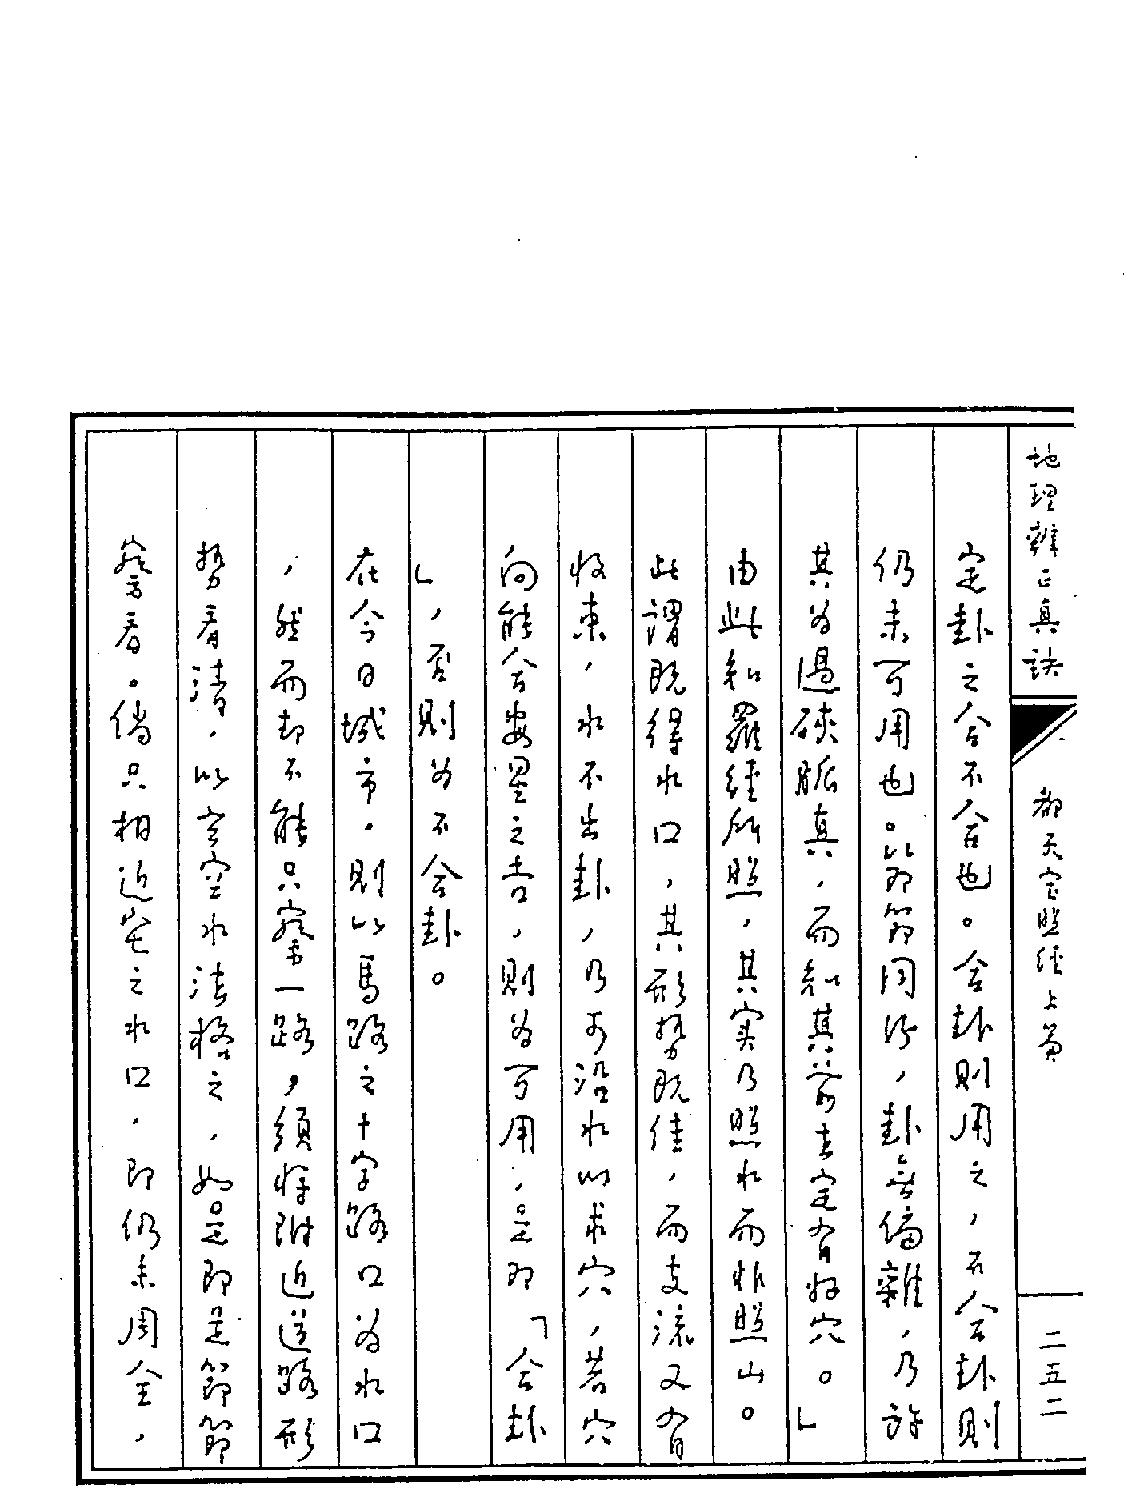 地理辨正真訣
都天宝照經上篇
二五二
定卦之合不合也。合卦則用之，不合卦則
仍未可用也。以即節節同行，卦無偏雜，乃許
其為過硤脈真，而知其前去定有好穴。」
由此知羅經所照，其实乃照水而非照山。
此謂既得水口，其形勢既佳，而支流又有
收束，水不出卦，乃可沿水以求穴，若穴
向能合安星之吉，則為可用，是即「合卦
」，否則為不合卦。
在今日城市，則以馬路之十字路口為水口
，然而却不能只察一路，須將附近道路形
勢看清，以玄空水法格之，如是即是節節
察看。倘只相近宅之水口，即仍未周全，